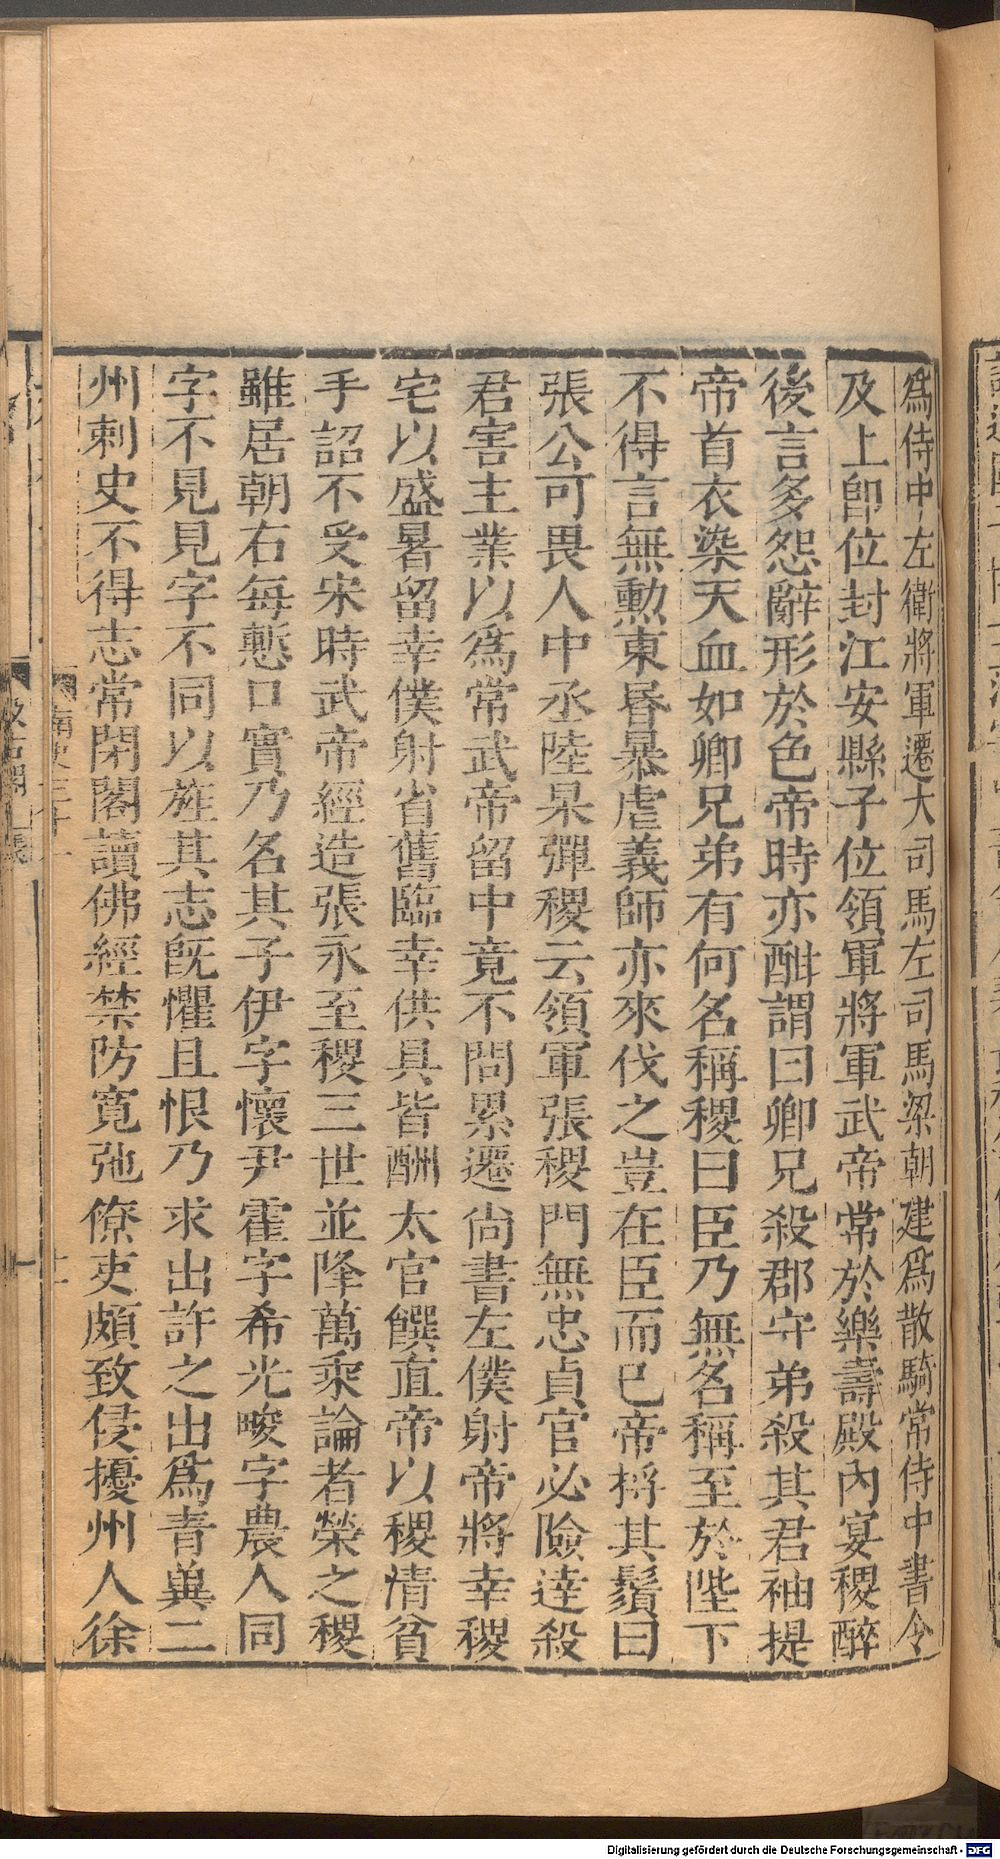 爲侍中左衛將軍遷大司馬左司馬梁朝建爲散騎常侍中書令
及上卽位封江安縣子位領軍將軍武帝常於樂壽殿內宴稷醉
後言多怨辭形於色帝時亦酣謂曰卿兄殺郡守弟殺其君袖提
帝首衣染天血如卿兄弟有何名稱稷曰臣乃無名稱至於陛下
不得言無勳東昬暴虐義師亦來伐之豈在臣而已帝捋其鬚曰
張公可畏人中丞陸杲彈稷云領軍張稷門無忠貞官必險達殺
君害主業以爲常武帝留中竟不問累遷尙書左僕射帝將幸稷
宅以盛暑留幸僕射省舊臨幸供具皆酬太官饌直帝以稷清貧
手詔不受宋時武帝經造張永至稷三世並降萬乘論者榮之稷
雖居朝右每慙口實乃名其子伊字懷尹霍字希光畯字農人同
字不見見字不同以旌其志旣懼且恨乃求出許之出爲青兾二
州刺史不得志常閉閤讀佛經禁防寬弛僚吏頗致侵擾州人徐
南史三十一
十一
汲古閣
Digitalisierung gefördert durch die Deutsche Forschungsgemeinschaft - DFG